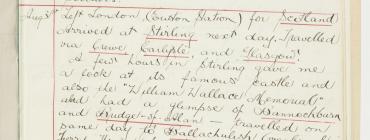 Aug 3rd Left London (Euston Station) for Scotland
Arrived at Stirling next day. Travelled
via Crewe Carlyle, and Glasgow.
A few hours in Stirling gave me
a look at its famous castle and
also the "William Wallace Memorial"
and had a glimpse of Bannockburn
and Bridge-of-Allan — travelled on
same day to Ballachulish